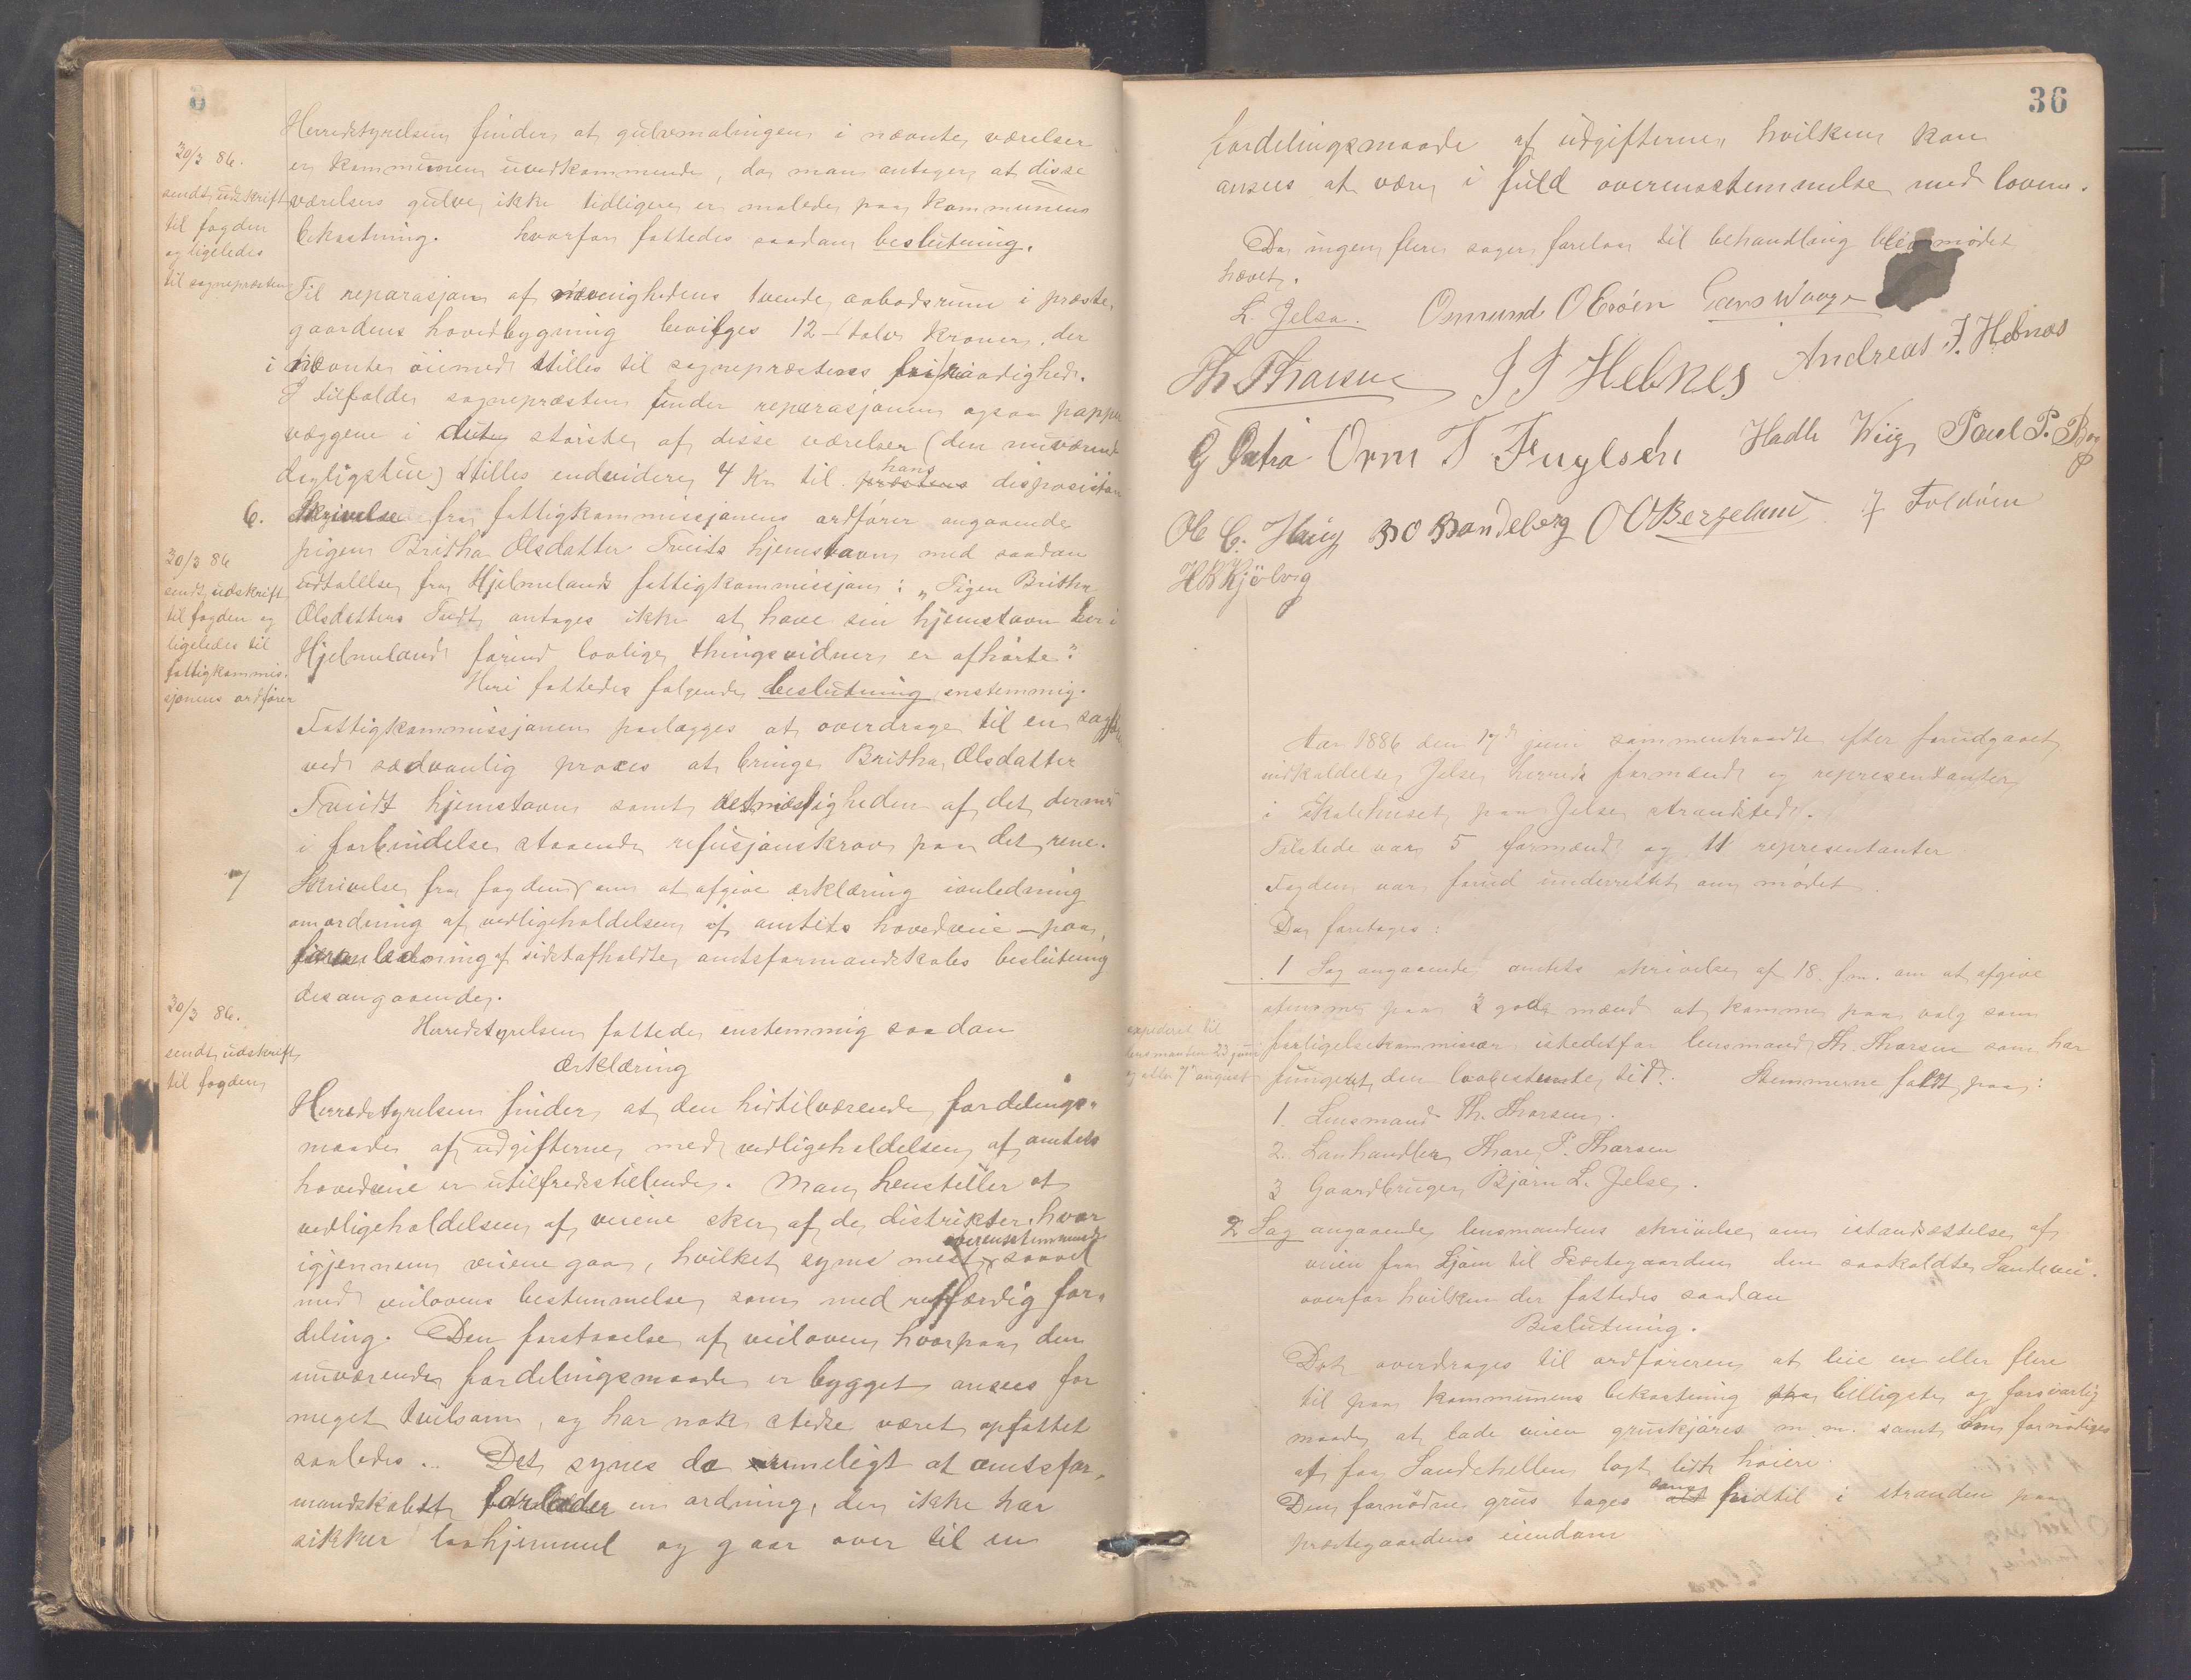 Herredstyrelsen finder at gulvmalingen i nævnte værelser
er kommunen uvedkommende, da man antager at disse
værelsers gulve ikke tidligere er malede paa kommunens
bekostning. hvorfor fattedes saadan beslutning.
30/3 86.
sendt udskrift
til fogden
og ligeledes
til sognepræsten
Til reparasjon af tvende aabodsrum i præste-
gaardens hovedbygning bevilges 12 – tolv kroner, der
i nævnte øiemed stilles til sognepræstens fri raadighed.
I tilfælde sognepræsten under reparasjonen ogsaa pappe
væggene i det største af disse værelser (den nuværende
dagligstue) stilles endvidere 4 Kr til hans disposision
6. Skrivelse fra fattigkommissjonens ordfører angaaende
pigen Britha Olsdatter Tveits hjemstavn med saadan
udtalelse fra Hjelmelands fattigkommissjon: „Pigen Britha
Olsdatters Tvedt antages ikke at have sin hjemstavn her i
Hjelmeland førend lovlige thingsvidner er afhørte."
30/3 86
sendt udskrift
til fogden og
ligeledes til
fattigkommis-
sjonens ordfører
Heri fattedes følgende beslutning enstemmig.
Fattigkommissjonen paalægges at overdrage til en sagfører
ved sædvanlig proces at bringe Britha Olsdatter
Tveidt hjemstavn samt retmæsigheden af det dermed
i forbindelse staaende refusjonskrav paa det rene.
7 Skrivelse fra fogden om at afgive erklæring i anledning
omordning af vedligeholdelsen af amtets hovedveie – paa
foranledning af sidstafholdte amtsformandskabs beslutning
desangaaende.
Herredstyrelsen fattede enstemmig saadan
erklæring
30/3 86.
sendt udskrift
til fogden
Herredstyrelsen finder at den hidtilværende fordelings-
maade af udgifterne med vedligeholdelsen af amtets
hovedveie er utilfredsstillende. Man henstiller at
vedligeholdelsen af veiene sker af de distrikter hvor
igjennem veiene gaar, hvilket synes mest overensstemmende saavel
med veilovens bestemmelse som med retfærdig for-
deling. Den forstaaelse af veiloven hvorpaa den
nuværende fordelingsmaade er bygget ansees for
meget tvilsom, og har nok stedse været opfattet
saaledes. Det synes da rimeligt at amtsfor-
mandskabet forlader en ordning, der ikke har
sikker lovhjemmel og gaar over til en
36
fordelingsmaade af udgifterne, hvilken kan
ansees at være i fuld overensstemmelse med loven.
Da ingen flere sager forelaa til behandling blev mødet
hævet.
L. Jelsa. Osmund O Eröen Waage
Th Thorsen J J Hebnes Andreas J. Hebnes
G Orm T Fuglsen Hadle Wiig Paul P.
Ole C. Haug BO Bandeberg O O Bergeland J Foldöen
H B Kjölvig
Aar 1886 den 17de juni sammentraadte efter forudgaaet
indkaldelse Jelse herreds formænd og representanter
i skolehuset paa Jelse strandsted.
Tilstede var 5 formænd og 11 representanter
Fogden var forud underrettet om mødet.
Da foretoges:
1 Sag angaaende amtets skrivelse af 18. f.m. om at afgive
stemme paa 3 gode mænd at komme paa valg som
forligelseskommissær istedetfor lensmand Th. Thorsen som har
fungeret den lovbestemte tid. Stemmerne faldt paa:
expederet til
lensmanden 23 juni
og atter 7de august
1. Lensmand Th. Thorsen.
2. Lanhandler Thore P. Thorsen
3 Gaardbruger Bjørn L. Jelse.
2 Sag angaaende lensmandens skrivelse om istandsættelse af
veien fra Sjøen til Præstegaarden den saakaldte Sandevei.
overfor hvilken der fattedes saadan
Beslutning.
Det overdrages til ordføreren at leie en eller flere
til paa kommunens bekostning paa billigste og forsvarlig
maade at lade veien gruskjøres m.m. samt om fornødiges
at faa Sandehellen lagt lidt høiere.
Den fornødne grus tages fridtil i stranden paa
præstegaardens eiendom